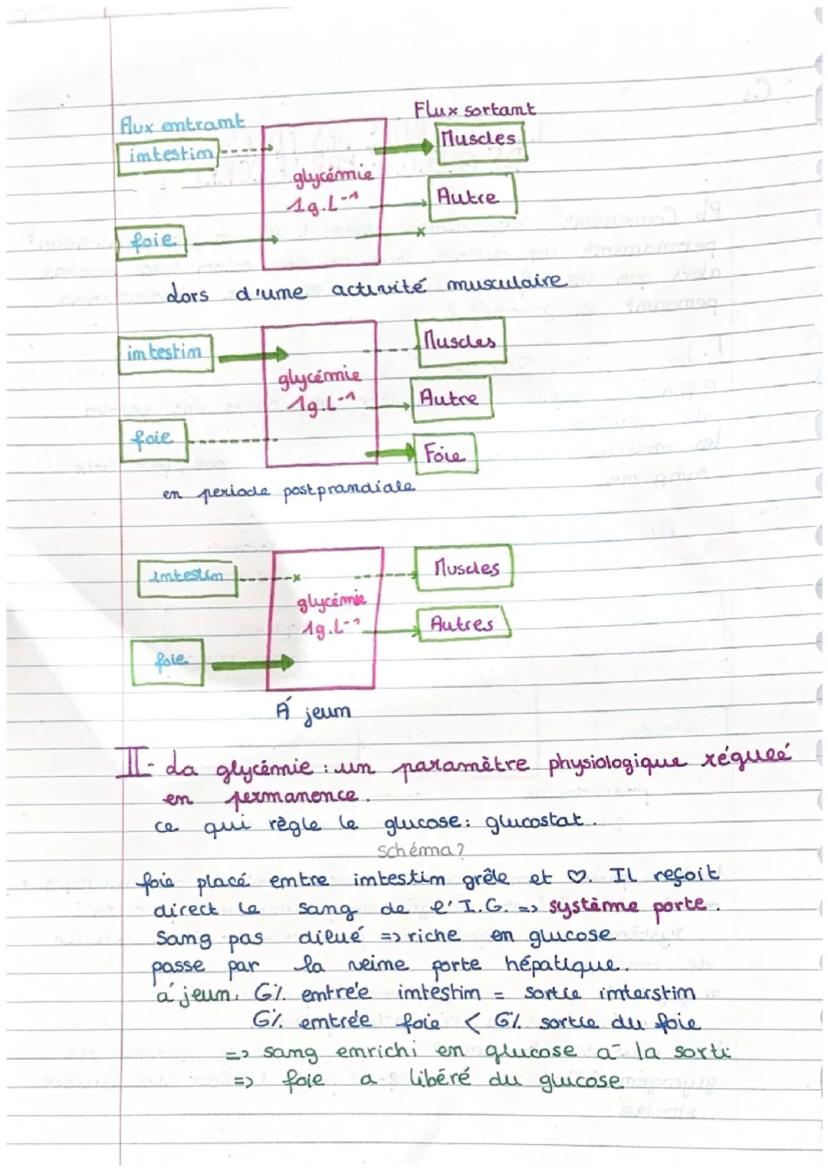 Flux entrant
Flux sortant
intestin
Muscles
glycémie
1g.L-1
Autre
foie
x
lors d'une activité musculaire
intestin
Muscles
glycémie
1g.L-1
Autre
foie
Foie
en periode postprandiale
intestin
x
Muscles
glycémie
1g.L-1
Autres
foie
À jeun
II- La glycémie : un paramètre physiologique régulé
en permanence.
ce qui règle le glucose: glucostat.
schéma?
foie placé entre intestin grêle et ♡. Il reçoit
direct le sang de l'I.G. => système porte.
Sang pas dilué => riche en glucose
passe par la veine porte hépatique.
à jeun. G% entrée intestin = sortie interstin
G% entrée foie < G% sortie du foie
=> sang enrichi en glucose à la sorti
=> foie a libéré du glucose